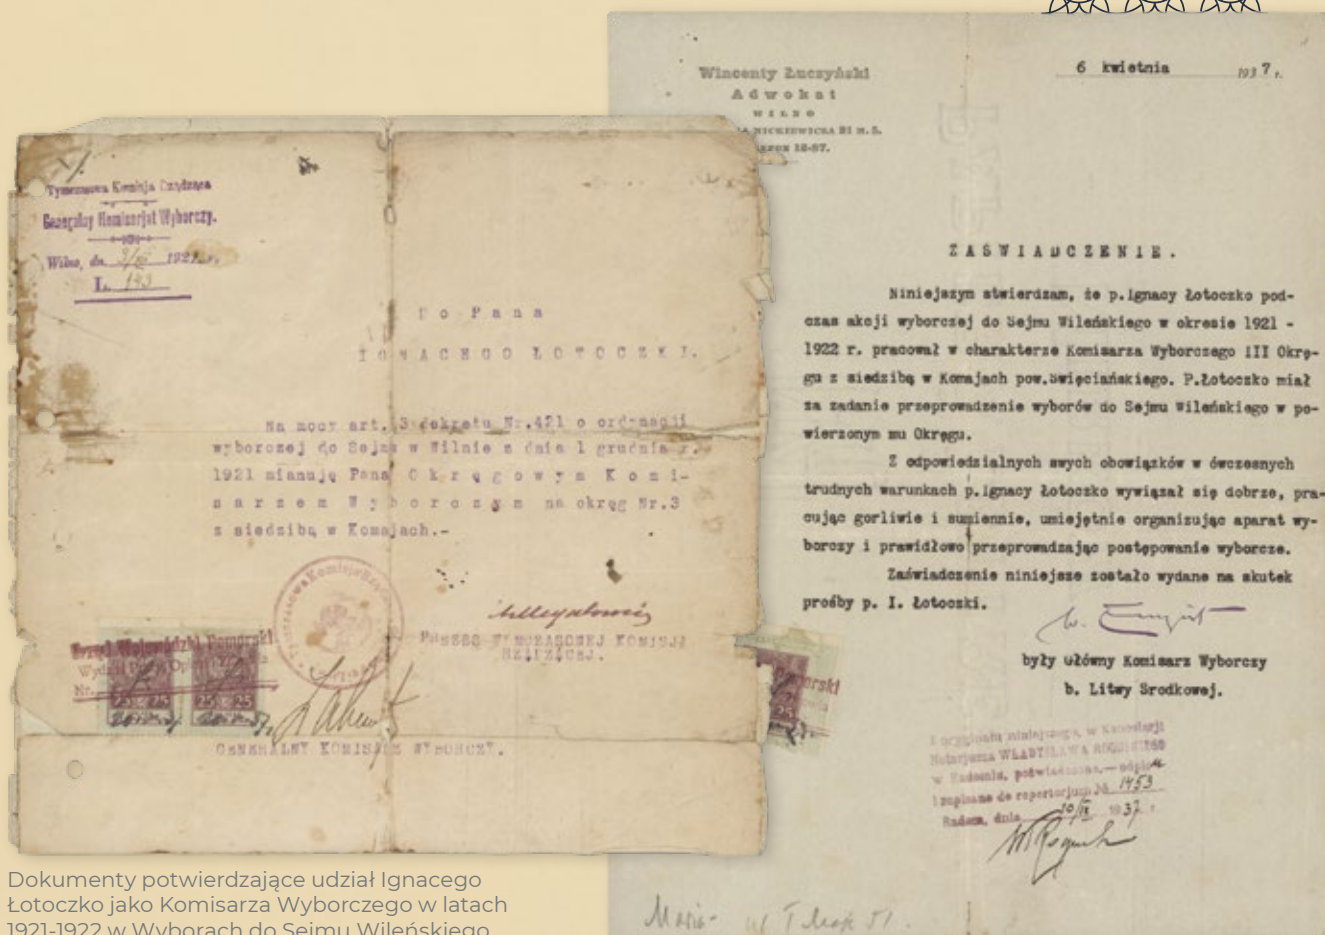 Tymczasowa Komisja Rządząca
Generalny Komisarjat Wyborczy.
Wilno, dn. 3/XII 1921 r.
L. 143
Do Pana
IGNACEGO ŁOTOCZKI.
Na mocy art. 3 dekretu Nr.421 o ordynacji
wyborczej do Sejmu w Wilnie z dnia 1 grudnia r.
1921 mianuję Pana Okręgowym Komi-
sarzem Wyborczym na okręg Nr.3
z siedzibą w Komajach.-
Tymczasowa Komisja
PREZES TYMCZASOWEJ KOMISJI
RZĄDZĄCEJ.
Urząd Wojewódzki Pomorski
Wydział
Nr.
25 25 25 25
GENERALNY KOMISARZ WYBORCZY.
Wincenty Łuczyński
Adwokat
WILNO
MICKIEWICZA 21 m. 5.
12-87.
6 kwietnia 1937 r.
ZAŚWIADCZENIE.
Niniejszym stwierdzam, że p.Ignacy Łotoczko pod-
czas akcji wyborczej do Sejmu Wileńskiego w okresie 1921 -
1922 r. pracował w charakterze Komisarza Wyborczego III Okrę-
gu z siedzibą w Komajach pow.Święciańskiego. P.Łotoczko miał
za zadanie przeprowadzenie wyborów do Sejmu Wileńskiego w po-
wierzonym mu Okręgu.
Z odpowiedzialnych swych obowiązków w ówczesnych
trudnych warunkach p.Ignacy Łotoczko wywiązał się dobrze, pra-
cując gorliwie i sumiennie, umiejętnie organizując aparat wy-
borczy i prawidłowo przeprowadzając postępowanie wyborcze.
Zaświadczenie niniejsze zostało wydane na skutek
prośby p. I. Łotoczki.
były Główny Komisarz Wyborczy
b. Litwy Srodkowej.
25
Z oryginału niniejszego, w Kancelarji
Notarjusza WŁADYSŁAWA
w Radomiu, poświadczono, — odpis
i zapisano do repertorjum № 1453
Radom, dnia 20/IV 1937 r.
Maria- ul 1 Maja 51.
Dokumenty potwierdzające udział Ignacego
Łotoczko jako Komisarza Wyborczego w latach
1921-1922 w Wyborach do Sejmu Wileńskiego